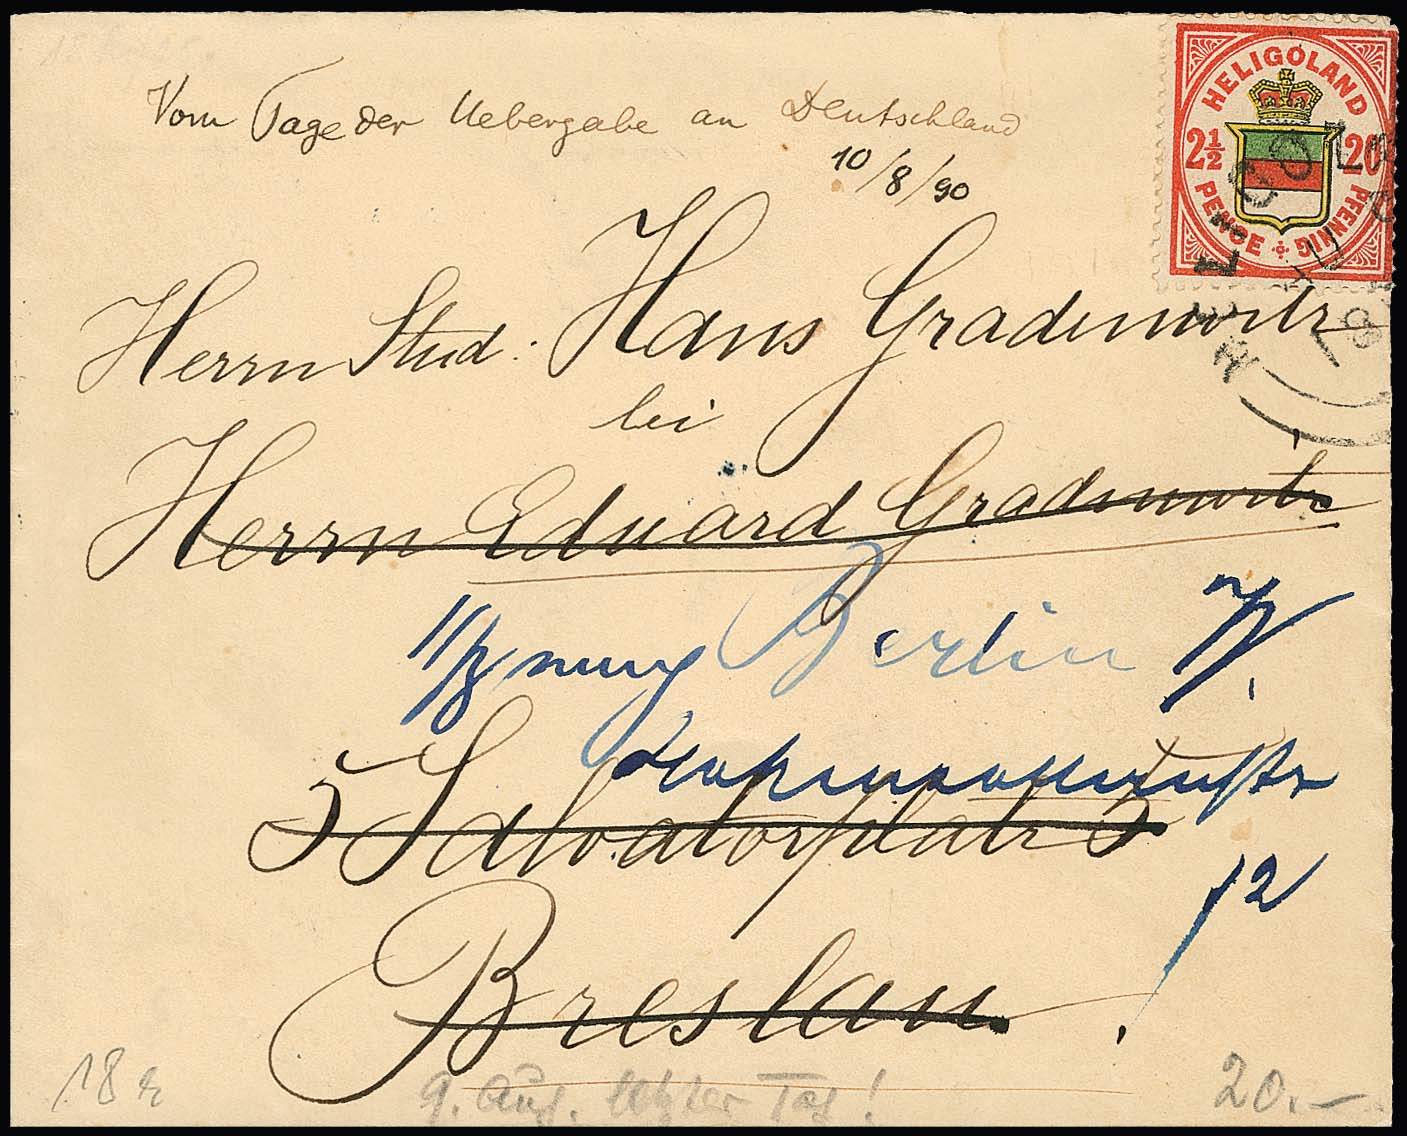 Vom Tage der Uebergabe an Deutschland
10/8/90
HELIGOLAND
2½ 20
PENCE PFENNIG
Herrn Stud. Hans Gradenwitz
bei
Herrn Eduard Gradenwitz
Berlin W
5 Salvatorplatz 5
12
Breslau
18
9. Aug. letzter Tag!
20.—